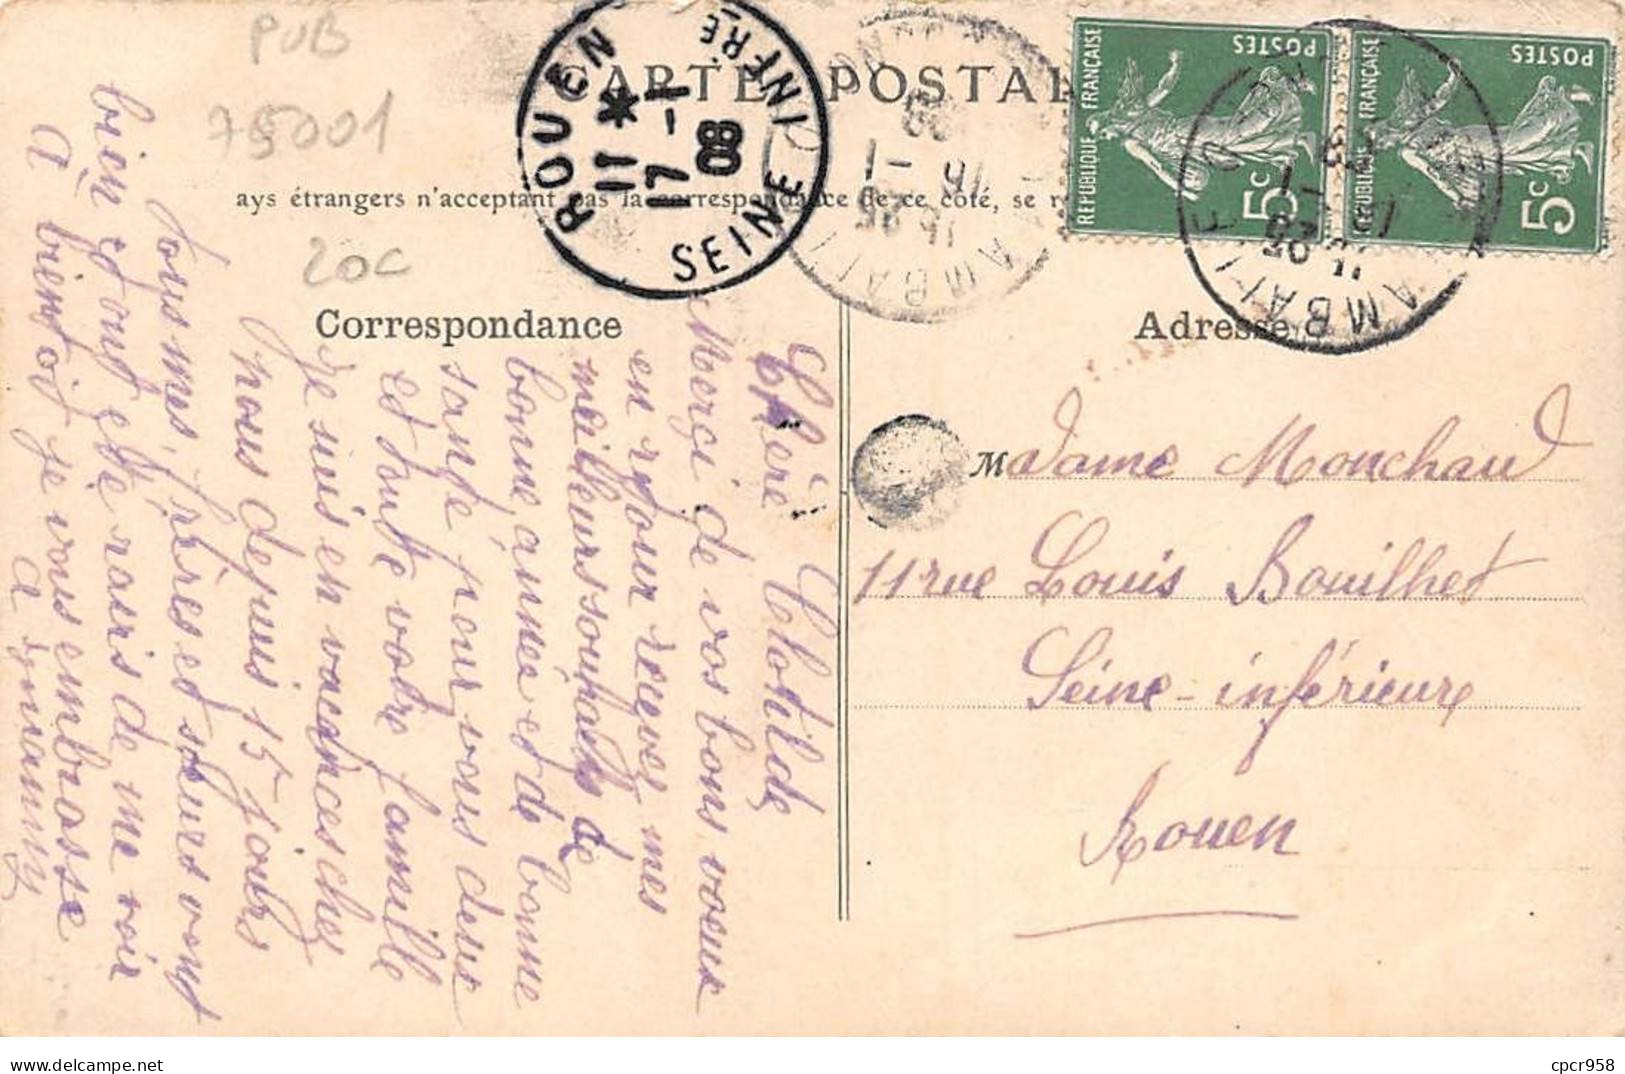 PUB
75001
20c
CARTE POSTAL
ays étrangers n'acceptant pas la correspondance de ce côté, se r
Correspondance
Adresse
ROUEN
11 *
17 - 1
08
SEINE INFRE
POSTES
REPUBLIQUE FRANÇAISE
5c
POSTES
REPUBLIQUE FRANÇAISE
5c
Chère Clotilde
Merçi de vos bons voeux
en retour recevez mes
meilleurs souhaits de
bonne année et de bonne
santé pour vous deux
et toute votre famille
Je suis en vacances chez
nous depuis 15 jours
tous mes frères et soeurs vont
bien et ont été ravis de me voir
A bientôt je vous embrasse
Madame Monchaud
11 rue Louis Bouilhet
Seine-inférieure
Rouen
cpcr958